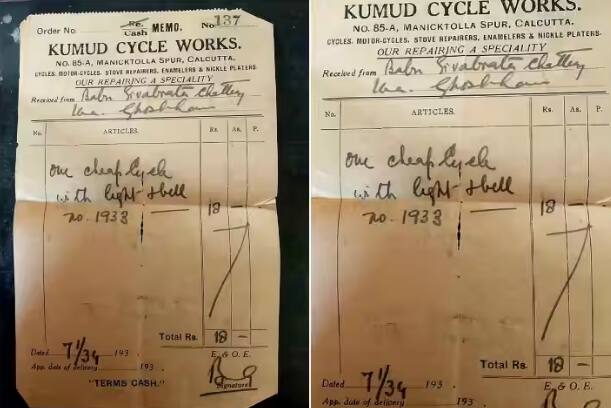 Order No. Re. Cash MEMO. No. 137
KUMUD CYCLE WORKS.
NO. 85-A, MANICKTOLLA SPUR, CALCUTTA.
CYCLES. MOTOR-CYCLES. STOVE REPAIRERS, ENAMELERS & NICKLE PLATERS.
OUR REPAIRING A SPECIALITY
Received from Babu Sivabrata
No. ARTICLES. Rs. As. P.
one cheap Cycle
with light & bell
no. 1933 — 18 —
Total Rs. 18 —
Dated 7/1/34 193 .
App. date of delivery 193 .
E. & O. E.
"TERMS CASH."
Signature
KUMUD CYCLE WORKS.
NO. 85-A, MANICKTOLLA SPUR, CALCUTTA.
CYCLES. MOTOR-CYCLES. STOVE REPAIRERS, ENAMELERS & NICKLE PLATERS.
OUR REPAIRING A SPECIALITY
Received from Babu Sivabrata
No. ARTICLES. Rs. As. P.
one cheap Cycle
with light & bell
no. 1933 — 18 —
Total Rs. 18 —
Dated 7/1/34 193 .
App. date of delivery 193 .
E. & O. E.